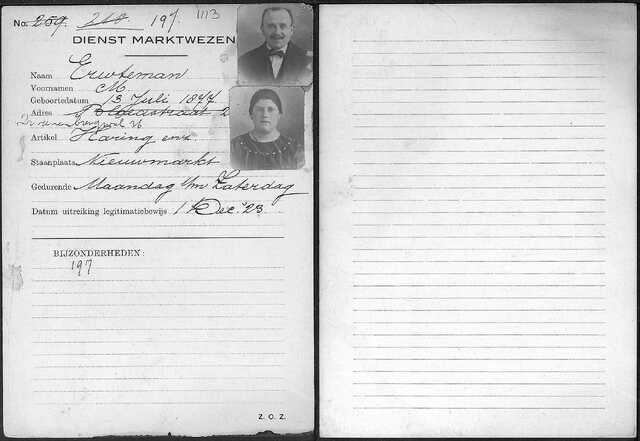 No. 259. 260. 197. 1113
DIENST MARKTWEZEN
Naam Erwteman
Voornamen M.
Geboortedatum 13 Juli 1877.
Adres Bloedstraat 2
Artikel Haring enz.
Staanplaats Nieuwmarkt
Gedurende Maandag t/m Zaterdag
Datum uitreiking legitimatiebewijs 1 Dec. '23.
BIJZONDERHEDEN:
197
Z. O. Z.